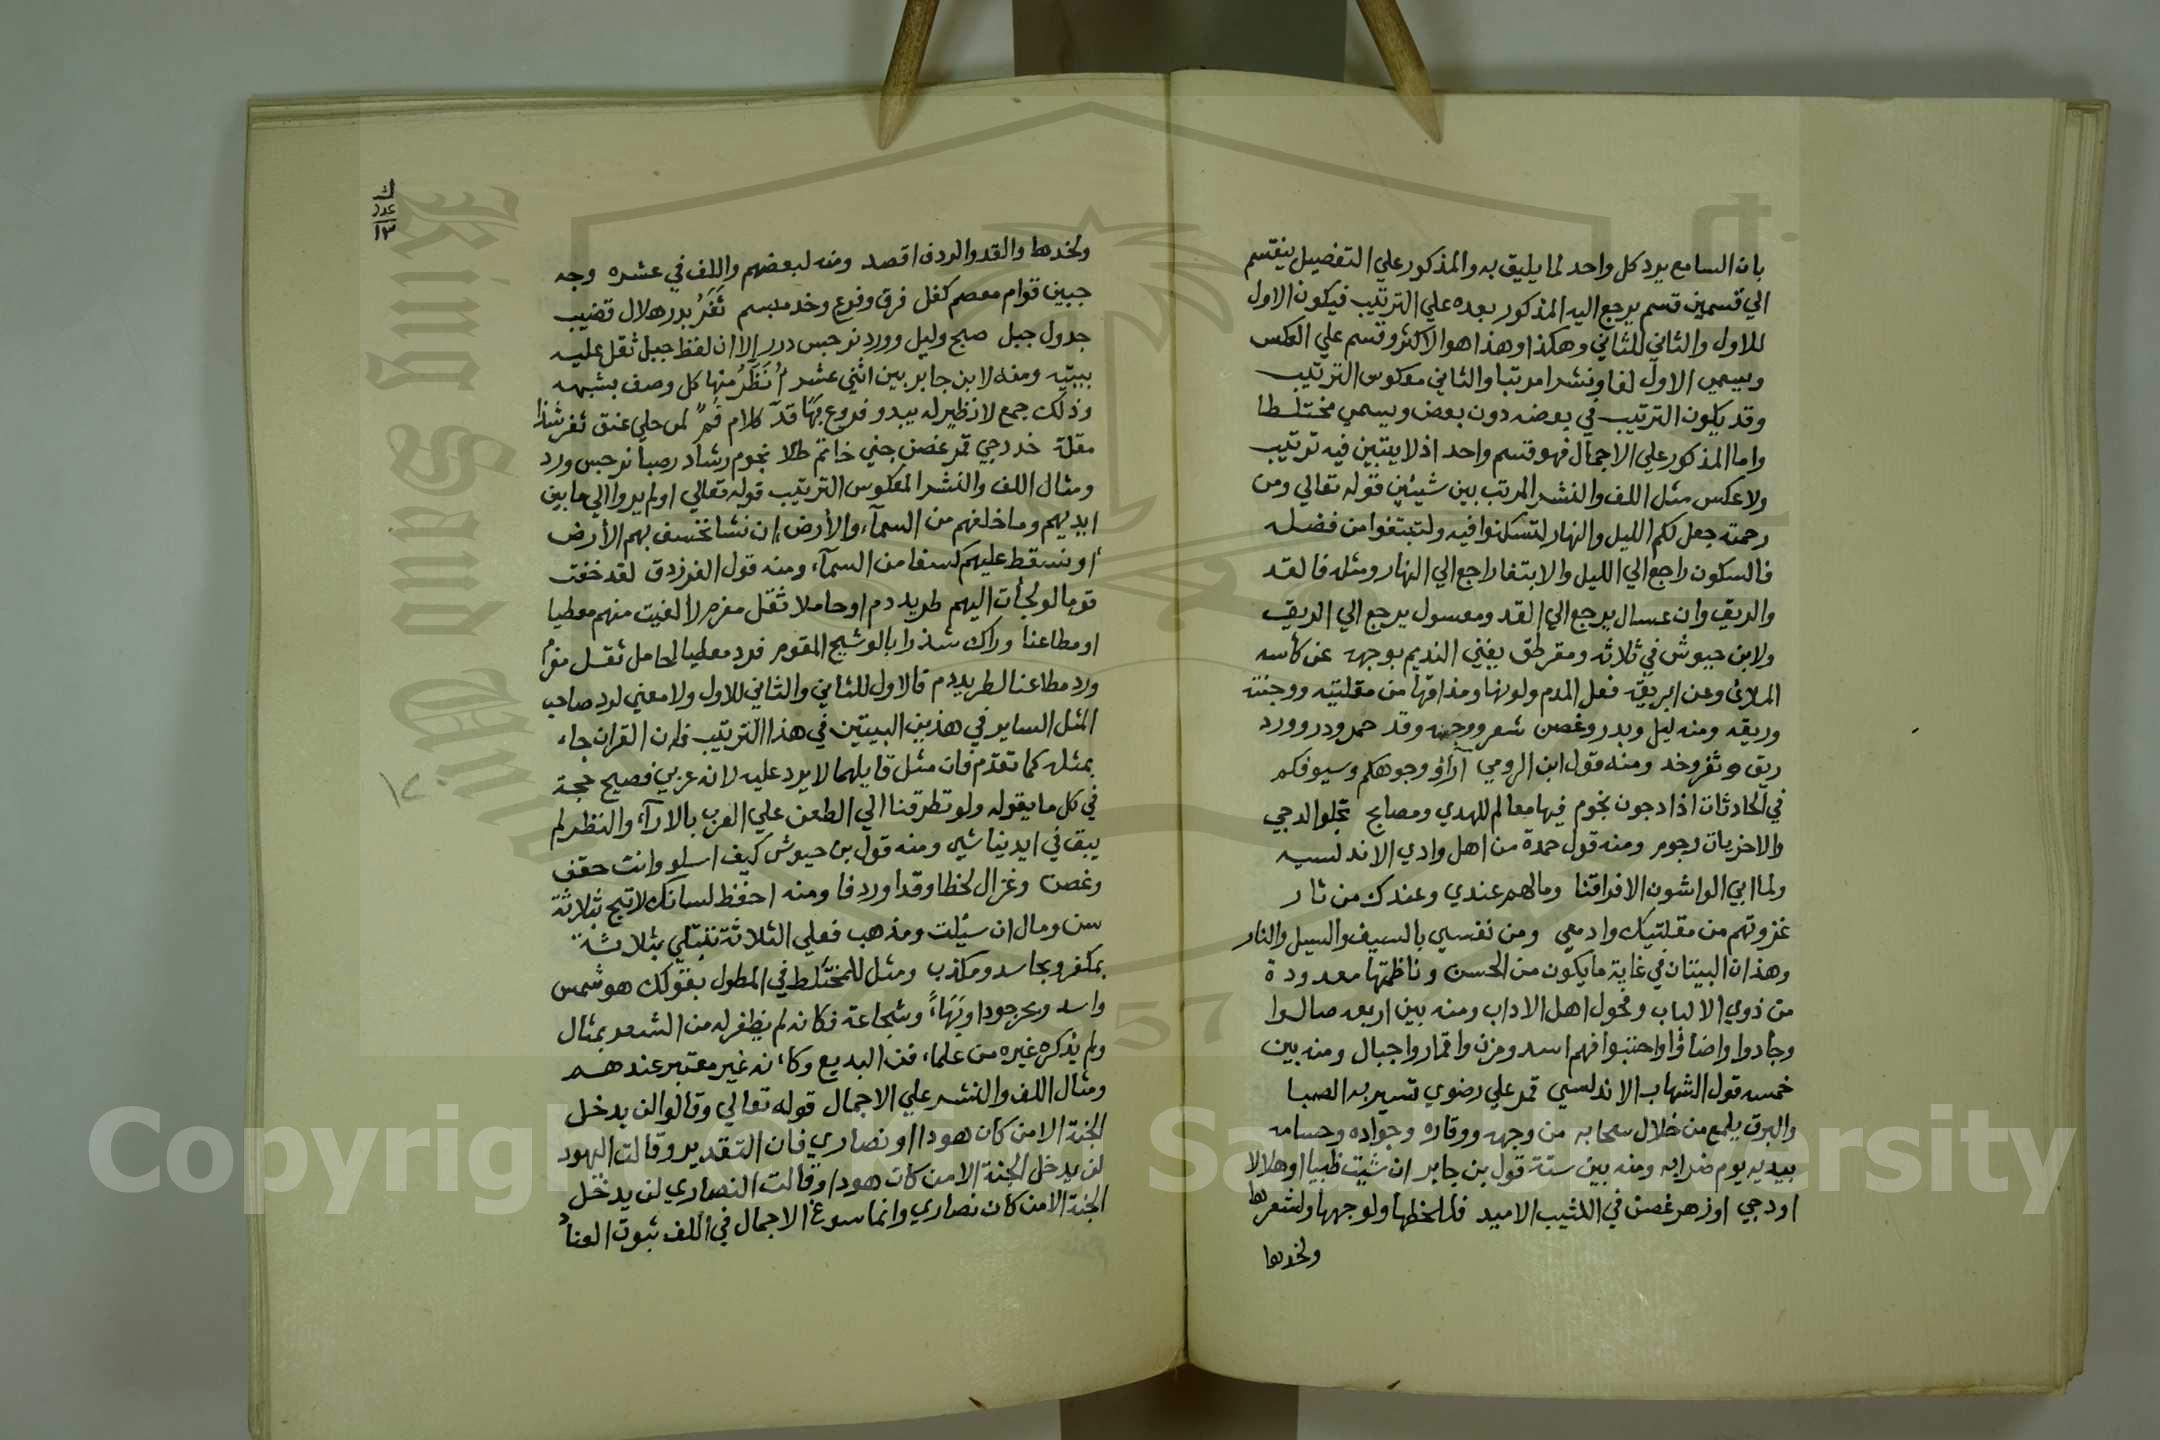 بان السامع يرد كل واحد لما يليق به والمذكور علي التفصيل ينقسم
الي قسمين قسم يرجع اليه المذكور بعده علي الترتيب فيكون الاول
للاول والثاني للثاني وهكذا وهذا هو الاكثر وقسم علي العكس
ويسمي الاول لفا ونشرا مرتبا والثاني معكوس الترتيب
وقد يكون الترتيب في بعضه دون بعض ويسمي مختلطا
واما المذكور علي الاجمال فهو قسم واحد اذ لا يتبين فيه ترتيب
ولا عكس مثل اللف والنشر المرتب بين شيئين قوله تعالي ومن
رحمته جعل لكم الليل والنهار لتسكنوا فيه ولتبتغوا من فضله
فالسكون راجع الي الليل والابتغا راجع الي النهار ومثله فالقد
والريق وان عسال يرجع الي القد ومعسول يرجع الي الريق
ولابن حيوش في ثلاثه ومقرطق يغني النديم بوجهه عن كأسه
الملائ وعن ابريقه فعل المدم ولونها ومذاقها من مقلتيه ووجنته
وريقه ومنه ليل وبدر وغصن شعر ووجه وقد خمر ودر وورد
ريق وثغر وخد ومنه قول ابن الرومي آراؤ وجوهكم وسيوفكم
في الحادثات اذا دجون نجوم فيها معالم للهدي ومصابح تجلوا الدجي
والاخريات رجوم ومنه قول حمدة من اهل وادي الاندلسيه
ولما ابي الواشون الا فراقنا ومالهم عندي وعندك من ثار
غزوتهم من مقلتيك وادمعي ومن نفسي بالسيف والسيل والنار
وهذان البيتان في غاية ما يكون من الحسن وناظمتها معدودة
من ذوي الالباب وفحول اهل الاداب ومنه بين اربعه صالوا
وجادوا واضاؤا واحتبوا فهم اسد ومزن واقمار واجبال ومنه بين
خمسه قول الشهاب الاندلسي قمر علي رضوي تسير به الصبا
والبرق يلمع من خلال سحابه من وجهه ووقاره وجواده وحسامه
بيديه يوم ضرابه ومنه بين ستة قول بن جابر ان شئت ظبيا او هلالا
او دجي او زهر غصن في الكثيب الاميد فللحظها ولوجهها ولشعرها
ولخدها
ولخدها والقد والردف اقصد ومنه لبعضهم واللف في عشره وجه
جبين قوام معصم كفل فرق وفرع وخد مبسم ثَغَرُ بدر هلال قضيب
جدول جبل صبح وليل وورد نرجس درر الا ان لفظ جبل ثقل عليه
ببيته ومنه لابن جابر بين اثني عشر منها كل وصف بشبهه
وذلك جمع لا نظير له يبدو فروع كلام فم حلي عنق ثغر شذا
مقلة خد دجي قمر غصن جني خاتم طلا نجوم رشاد رصبا نرجس ورد
ومثال اللف والنشر المعكوس الترتيب قوله تعالي اولم يروا الي ما بين
ايديهم وما خلفهم من السمآء والأرض ان نشا نخسف بهم الأرض
أو نسقط عليهم كسفا من السمآء ومنه قول الفرزدق لقد خفت
قوما لو لجأت اليهم طريد دم او حاملا ثقل مغرم لألفيت منهم معطيا
او مطاعنا وراك شذرا بالوشيج المقوم فرد معطيا لحامل ثقل مغرم
ورد مطاعنا لطريد دم فالاول للثاني والثاني للاول ولا معني لرد صاحب
المثل الساير في هذين البيتين في هذا الترتيب فان القران جاء
بمثله كما تقدم فان مثل قايلهما لا يرد عليه لانه عربي فصيح حجة
في كل ما يقوله ولو تطرقنا الي الطعن علي العرب بالارآء والنظر لم
يبق في ايدينا شي ومنه قول بن حيوش كيف اسلو وانت حقف
وغصن وغزال لحظا وقدا وردفا ومنه احفظ لسانك لا تبح بثلاثة
سن ومال ان سئلت ومذهب فعلي الثلاثة تبتلي بثلاثة
بمكفر وبحاسد ومكذب ومثل للمختلط في المطول بقولك هو شمس
واسد وبحر جودا وبَهَاءً وشجاعة فكانه لم يظفر له من الشعر بمثال
ولم يذكره غيره من علماء فن البديع وكأنه غير معتبر عندهم
ومثال اللف والنشر علي الاجمال قوله تعالي وقالوا لن يدخل
الجنة الا من كان هودا او نصاري فان التقدير وقالت اليهود
لن يدخل الجنة الا من كان هودا وقالت النصاري لن يدخل
الجنة الا من كان نصاري وانما سوغ الاجمال في اللف ثبوت العناد
King Saud University
1957
Copyright © King Saud University